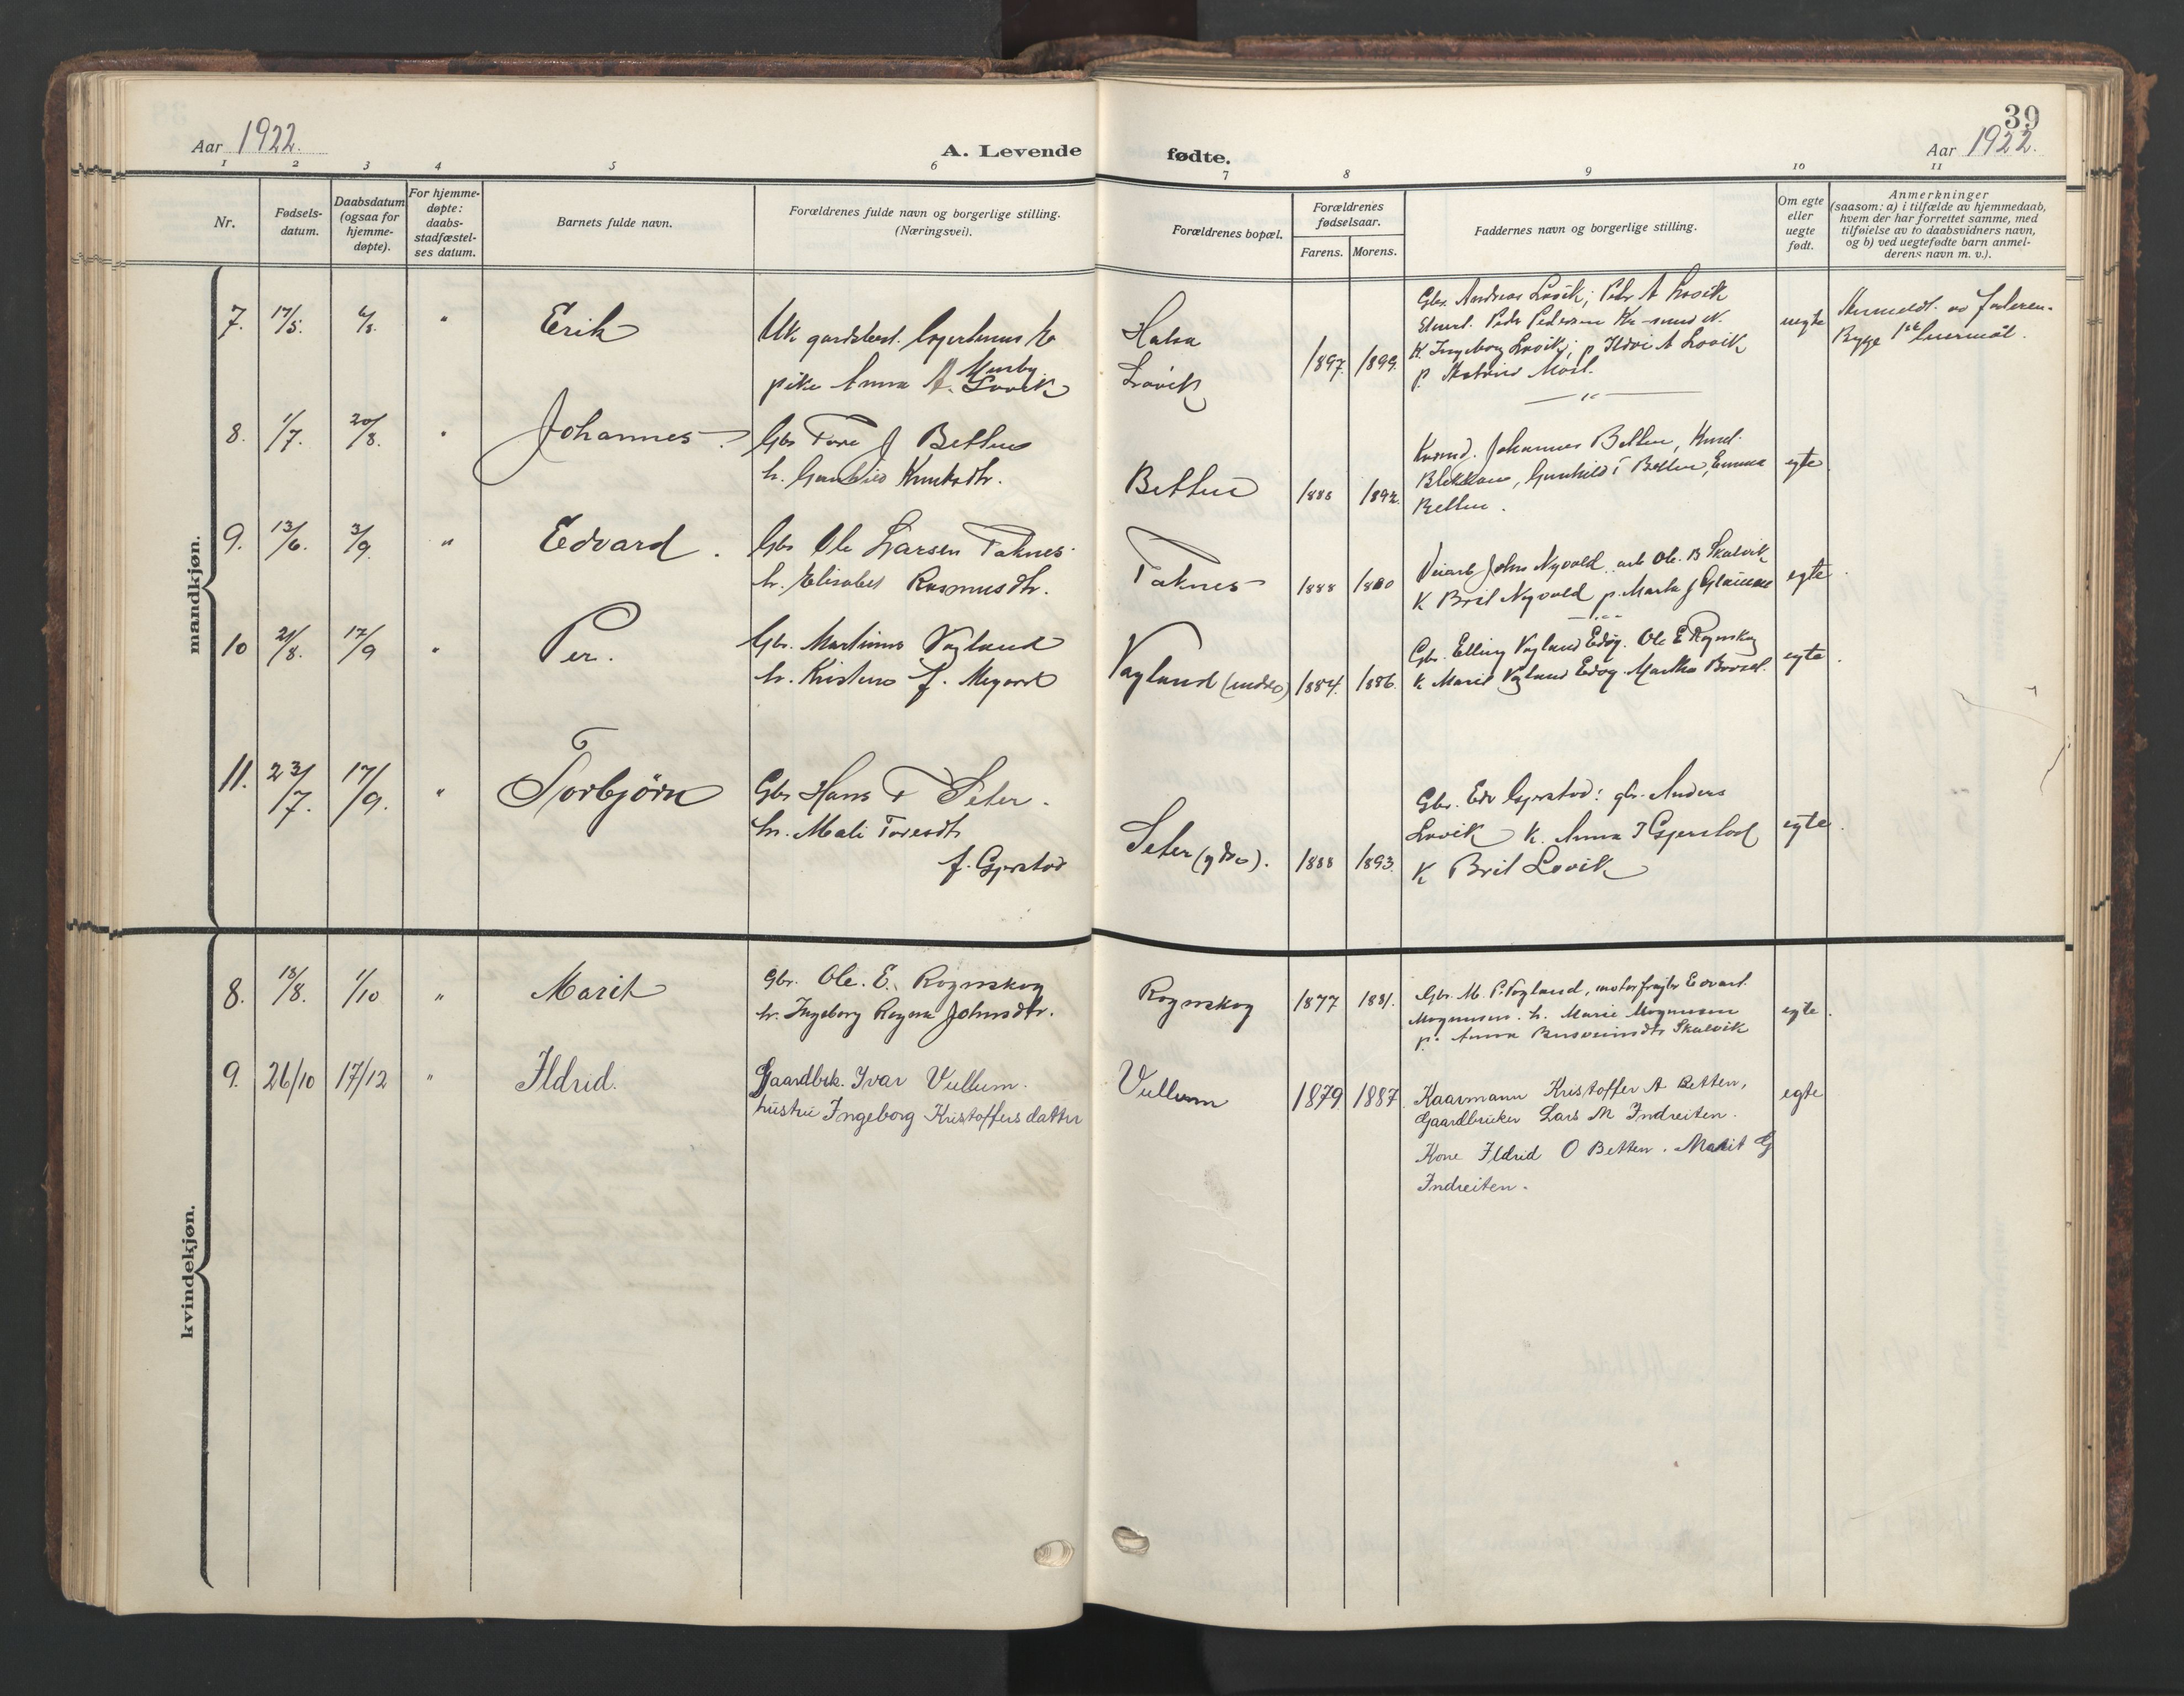 Aar 1922.
A. Levende
fødte.
39
Aar 1922.
1 2 3 4 5 6 7 8 9 10 11
Nr.
Fødsels-
datum.
Daabsdatum
(ogsaa for
hjemme-
døpte).
For hjemme-
døpte:
daabs-
stadfæstel-
ses datum.
Barnets fulde navn.
Forældrenes fulde navn og borgerlige stilling.
(Næringsvei).
Forældrenes bopæl.
Forældrenes
fødselsaar.
Farens. Morens.
Faddernes navn og borgerlige stilling.
Om egte
eller
uegte
født.
Anmerkninger
(saasom: a) i tilfælde av hjemmedaab,
hvem der har forrettet samme, med
tilføielse av to daabsvidners navn,
og b) ved uegtefødte barn anmel-
derens navn m. v.).
mandkjøn.
7. 17/5. 6/8. " Erik
Uk gardsbest.
pike Anna A. Lovik
Halsa
Lovik
1897. 1899.
Gbr. Andreas Lovik; Peder A Lovik
Peder Pedersen Kr-sund N.
K Ingeborg Lovik; p Ildri A Lovik
p.
uegte
Anmeldt av faderen.
Begge 1ste leiermål.
8. 1/7. 20/8. " Johannes.
Gbr Tore J Betten
h. Gunhild Knutsdtr.
Betten
1888 1892.
Johannes Betten, Knud
Blekken, Gunhild T Betten, Emma
Betten.
egte
9. 13/6. 3/9. " Edvard.
Gbr Ole Larsen Taknes
h. Elisabet Rasmusdtr.
Taknes
1888 1880
Veiarb John Nyvold arb Ole B Skalvik
K Brit Nyvold p. Marta J Glåmen
egte.
10 21/8. 17/9 " Per.
Gbr. Martinus Vagland
h. Kristine f. Megard
Vagland (indre)
1884. 1886.
Gbr. Elling Vagland Edøy. Ole E Rognskog
k Marit Vagland Edøy. Martha
egte.
11. 23/7. 17/9. " Torbjörn
Gbr Hans T Seter.
h. Mali Toresdtr
f. Gjerstad
Seter (ydre).
1888 1893.
Gbr. Edv Gjerstad: gbr. Anders
Lovik K. Anna T Gjerstad
K Brit Lovik
egte.
kvindekjøn.
8. 18/8. 1/10 " Marit
Gbr. Ole. E. Rognskog
h. Ingeborg Ragna Johnsdtr.
Rognskog
1877 1881.
Gbr. M. P. Vagland, motorfragtr Edvard
Magnussen. h. Marie Magnussen
p. Anna Skalvik
egte.
9. 26/10 17/12 " Ildrid.
Gaardbrk. Ivar Vullum.
hustru Ingeborg Kristoffersdatter
Vullum
1879 1887
Kaarmann Kristoffer A Betten,
Gaardbruker Lars M Indreiten.
Kone Ildrid O Betten. Marit G
Indreiten.
egte